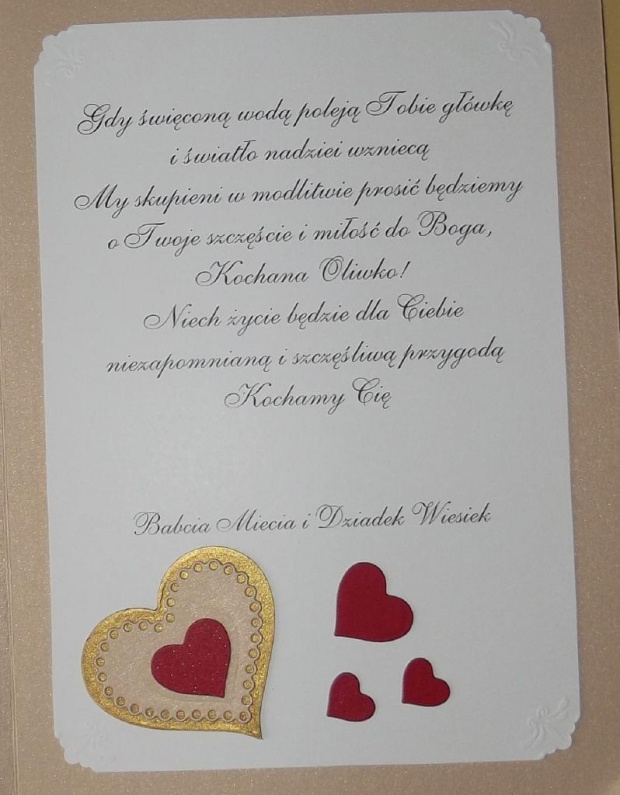 Gdy święconą wodą poleją Tobie główkę
i światło nadziei wzniecą
My skupieni w modlitwie prosić będziemy
o Twoje szczęście i miłość do Boga,
Kochana Oliwko!
Niech życie będzie dla Ciebie
niezapomnianą i szczęśliwą przygodą
Kochamy Cię
Babcia Miecia i Dziadek Wiesiek